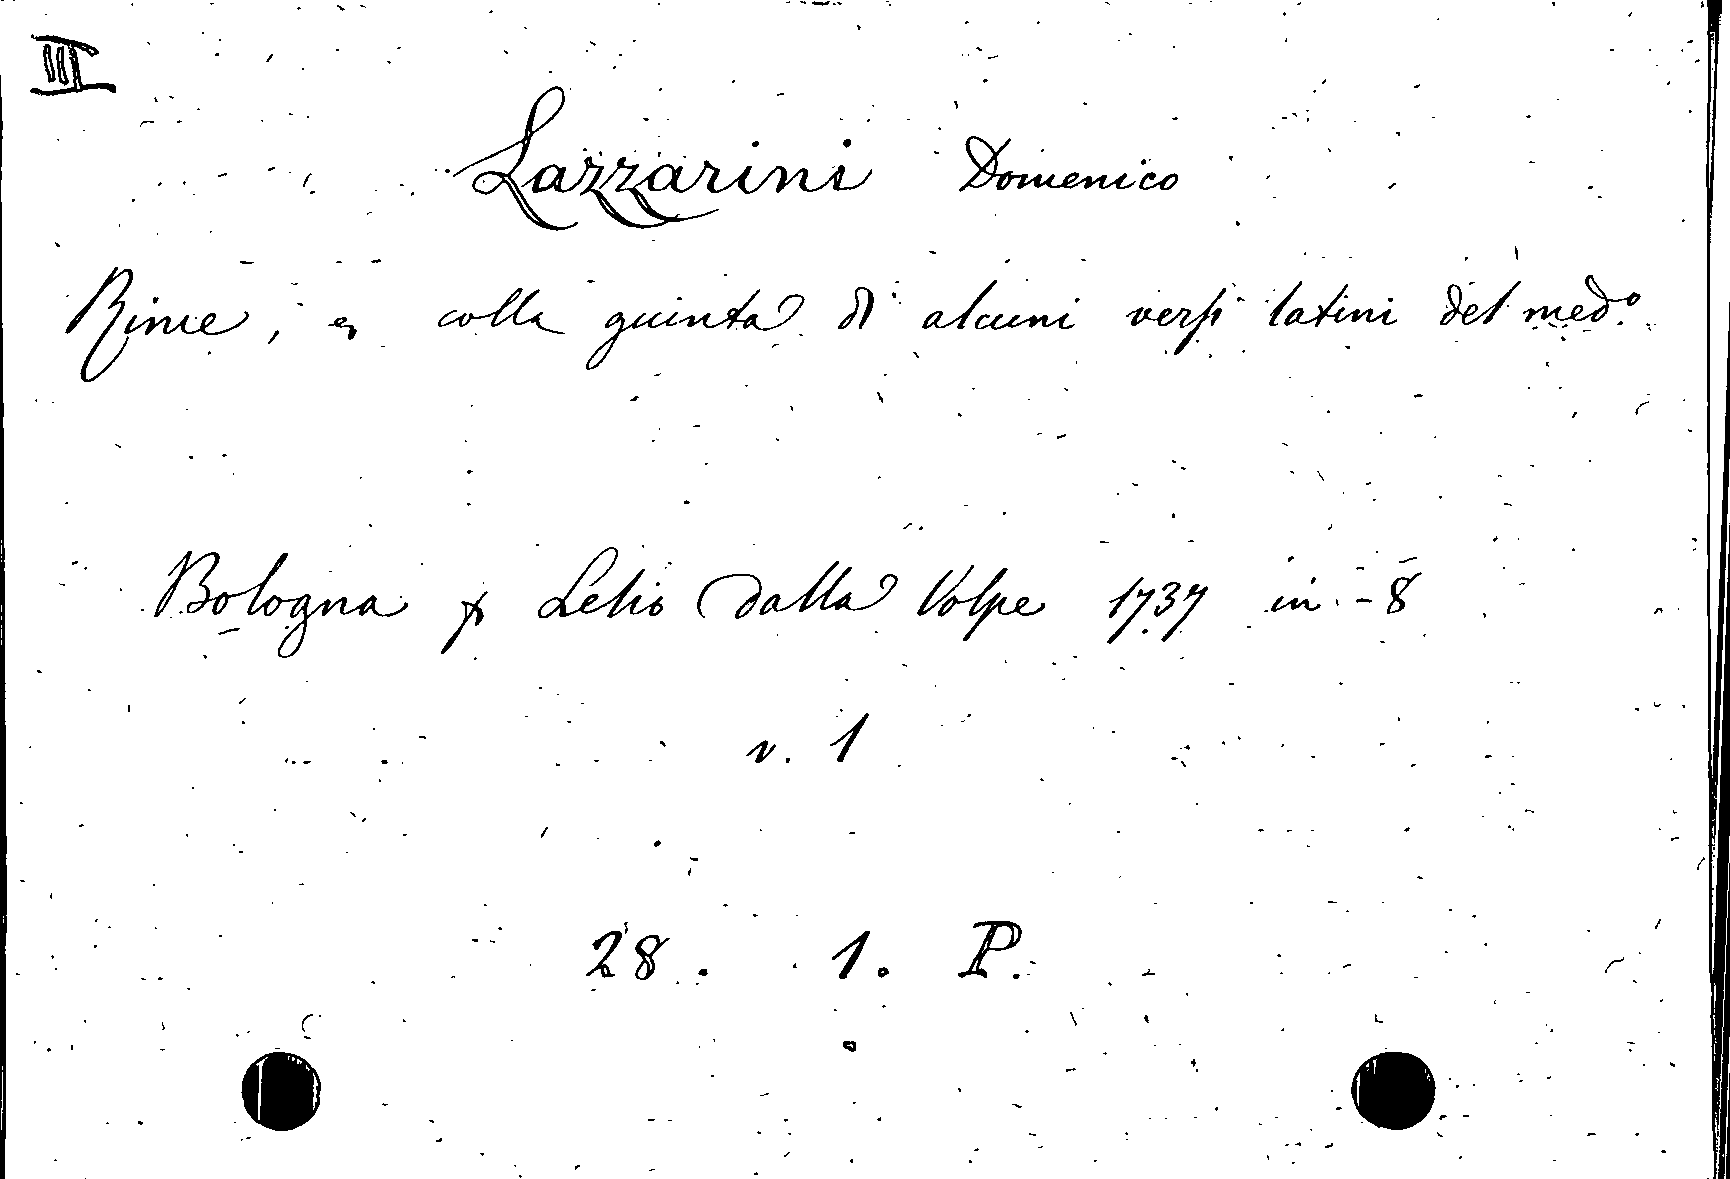 III
Lazzarini Domenico
Rime, e colla giunta di alcuni versi latini del med.º
Bologna p Lelio dalla Volpe 1737 in-8
v. 1
28. 1. P.